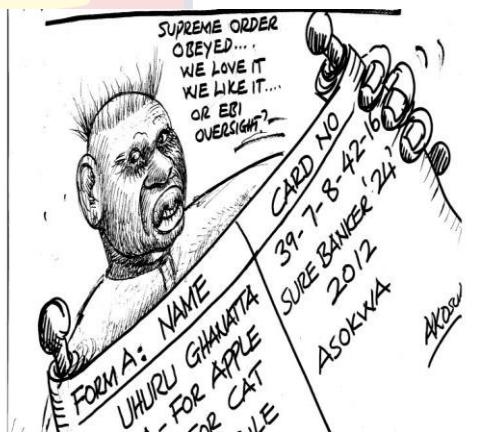 SUPREME ORDER
OBEYED....
WE LOVE IT
WE LIKE IT....
OR EBI
OVERSIGHT?
FORM A: NAME
UHURU GHANATTA
A- FOR APPLE
FOR CAT
CARD NO
39-7-8-42-16
SURE BANKER '24'
2012
ASOKWA